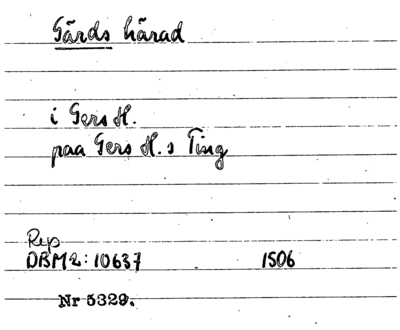 Gärds härad
i Gers H.
paa Gers H.s Ting
Rep
DBM2:10637 1506
Nr 5329.